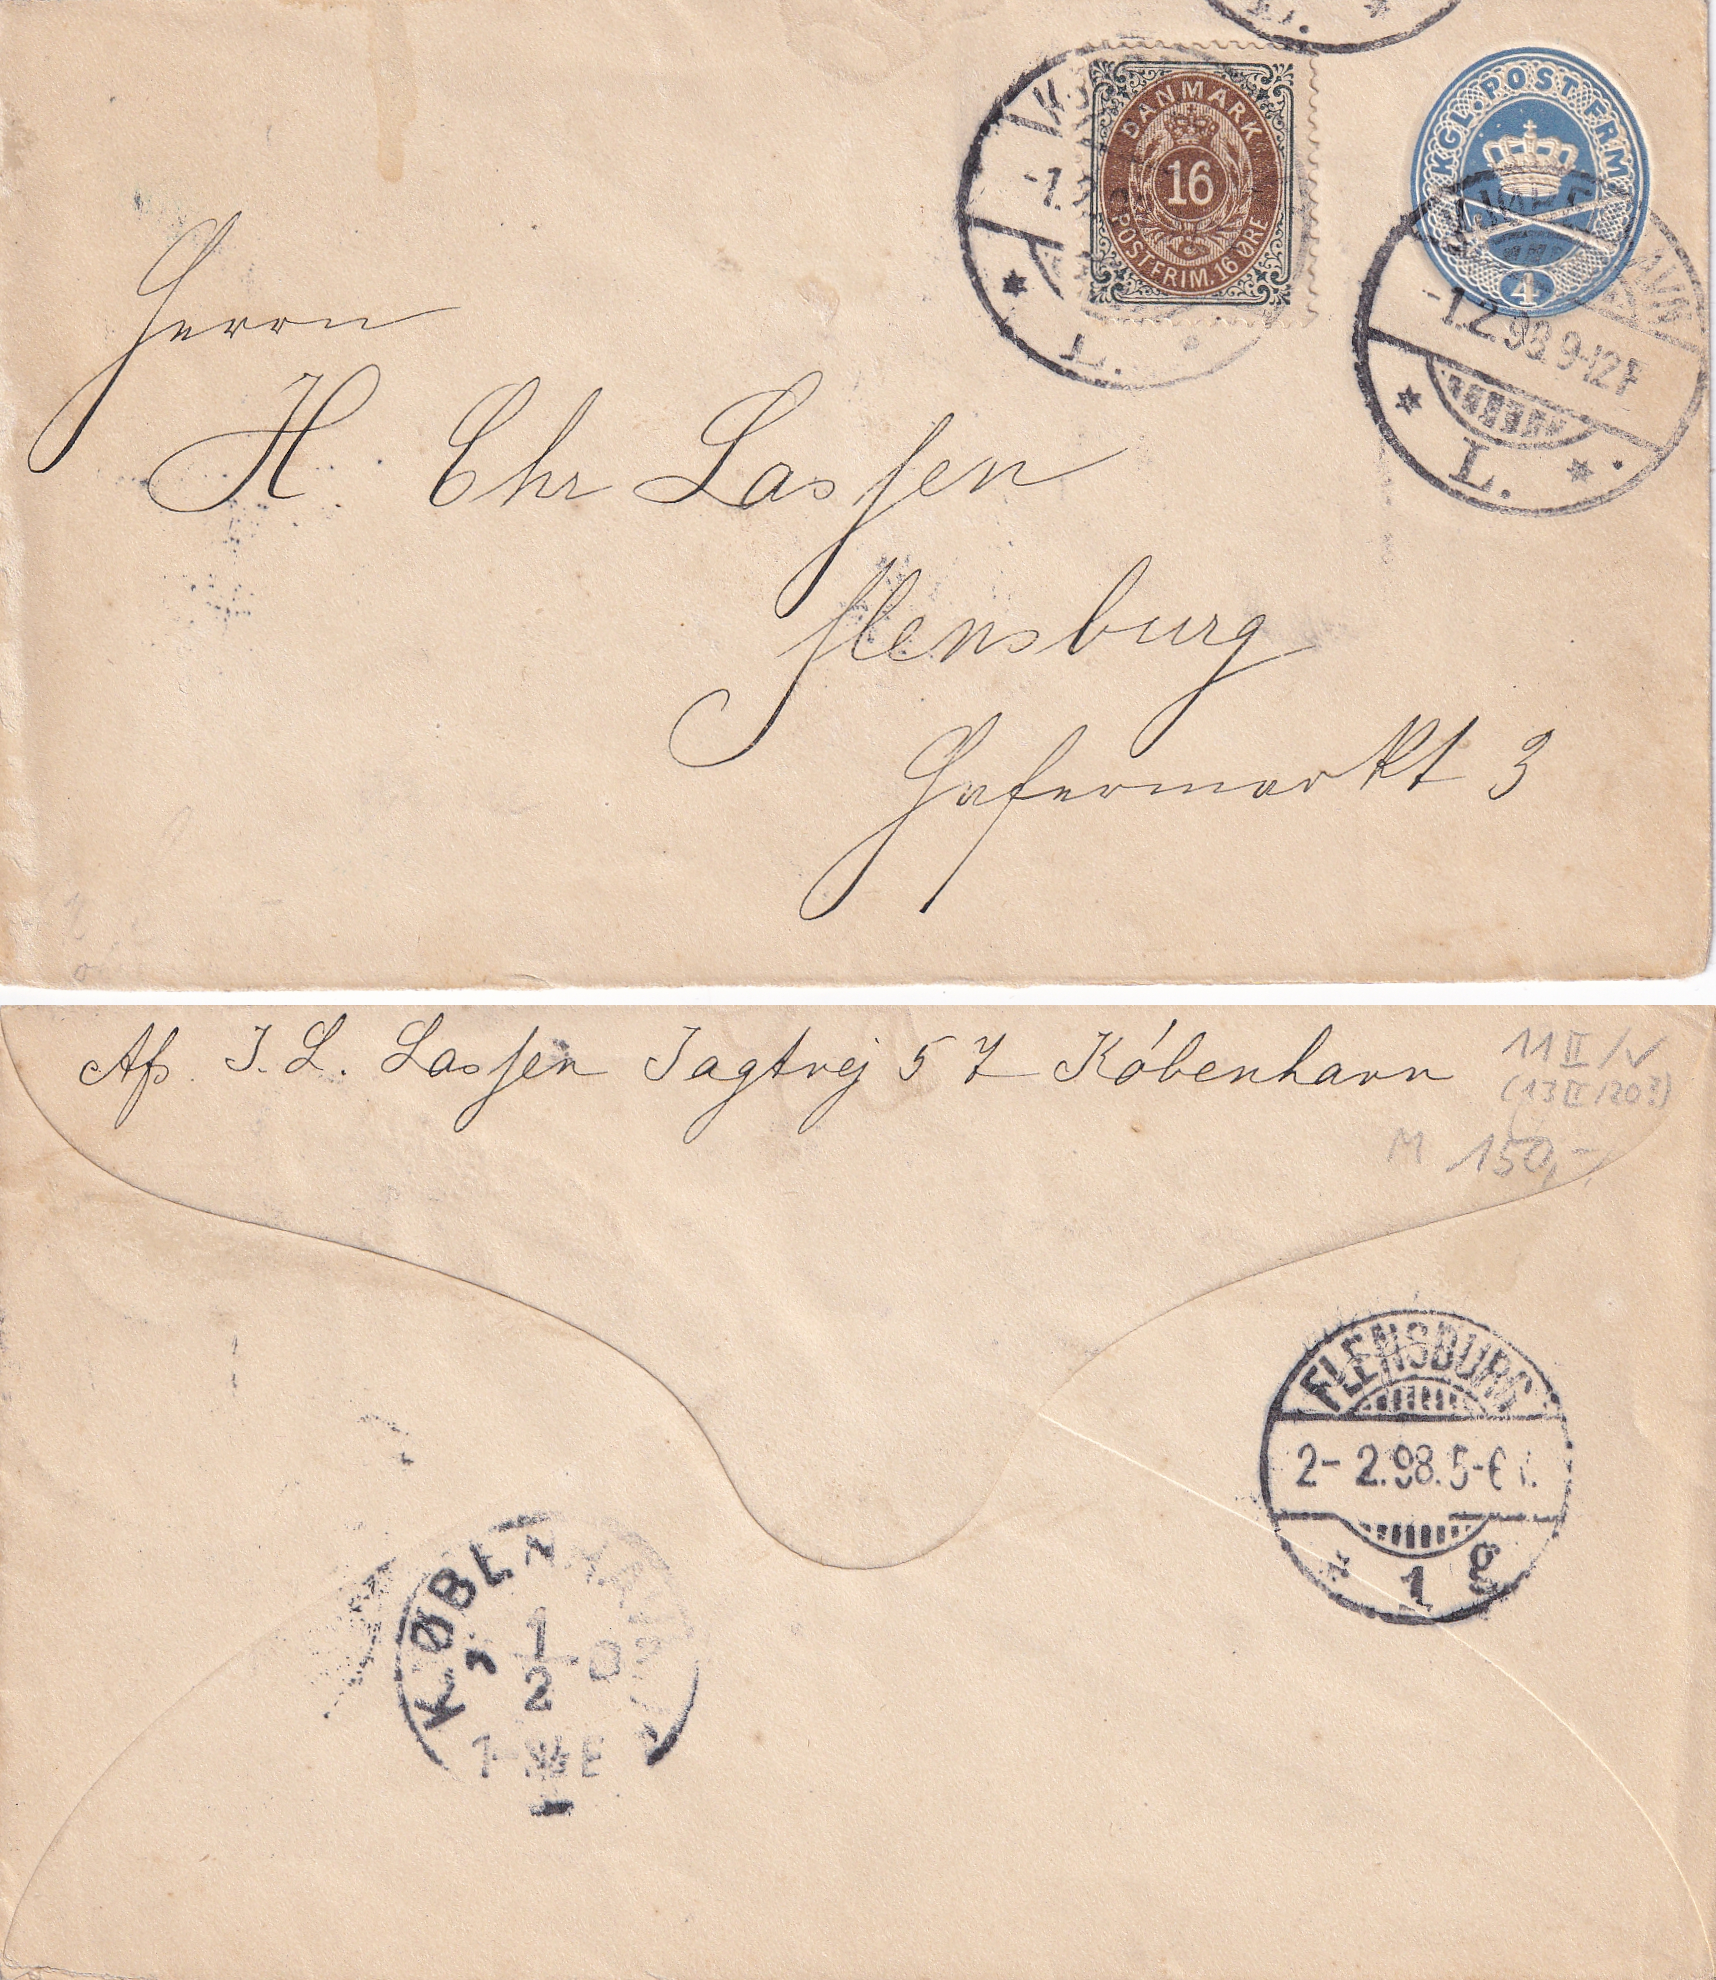 DANMARK
16
POSTFRIM. 16 ØRE
KGL. POST FRM
4
-1.2.98. 9-12F
L.
L.
L.
Herrn
H Chr Lassen
Flensburg
Hafermarkt 3
Afs. J. L. Lassen Jagtvej 57 Kóbenhavn
11 II / v
(13 II /20?)
M 150,-
FLENSBURG
2- 2.98. 5-6
* 1 g
KØBENHAVN
1
2